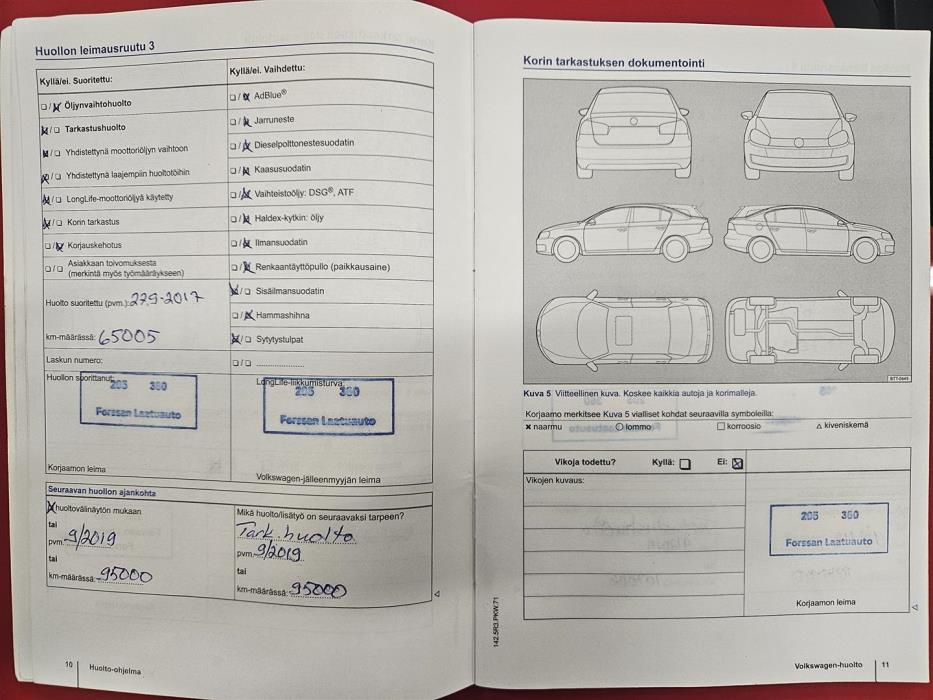 Huollon leimausruutu 3
Kyllä/ei. Suoritettu:
☐/☒ Öljynvaihtohuolto
☒/☐ Tarkastushuolto
☒/☐ Yhdistettynä moottoriöljyn vaihtoon
☒/☐ Yhdistettynä laajempiin huoltotöihin
☒/☐ LongLife-moottoriöljyä käytetty
☒/☐ Korin tarkastus
☐/☒ Korjauskehotus
☐/☐ Asiakkaan toivomuksesta
(merkintä myös työmääräykseen)
Huolto suoritettu (pvm.): 27.9-2017
km-määrässä: 65005
Laskun numero:
Huollon suorittanut:
205 360
Forssan Laatuauto
Korjaamon leima
Kyllä/ei. Vaihdettu:
☐/☒ AdBlue®
☐/☒ Jarruneste
☐/☒ Dieselpolttonestesuodatin
☐/☒ Kaasusuodatin
☐/☒ Vaihteistoöljy: DSG®, ATF
☐/☒ Haldex-kytkin: öljy
☐/☒ Ilmansuodatin
☐/☒ Renkaantäyttöpullo (paikkausaine)
☒/☐ Sisäilmansuodatin
☐/☒ Hammashihna
☒/☐ Sytytystulpat
☐/☐ ....................
LongLife-liikkumisturva:
205 360
Forssan Laatuauto
Volkswagen-jälleenmyyjän leima
Seuraavan huollon ajankohta
☒ huoltovälinäytön mukaan
tai
pvm. 9/2019
tai
km-määrässä: 95000
Mikä huolto/lisätyö on seuraavaksi tarpeen?
Tark.huolto
pvm. 9/2019
tai
km-määrässä: 95000
10 Huolto-ohjelma
Korin tarkastuksen dokumentointi
BTT-0649
Kuva 5 Viitteellinen kuva. Koskee kaikkia autoja ja korimalleja.
Korjaamo merkitsee Kuva 5 vialliset kohdat seuraavilla symboleilla:
✖ naarmu ○ lommo ☐ korroosio △ kiveniskemä
Vikoja todettu? Kyllä: ☐ Ei: ☒
Vikojen kuvaus:
205 360
Forssan Laatuauto
Korjaamon leima
142.5R3.PKW.71
Volkswagen-huolto 11